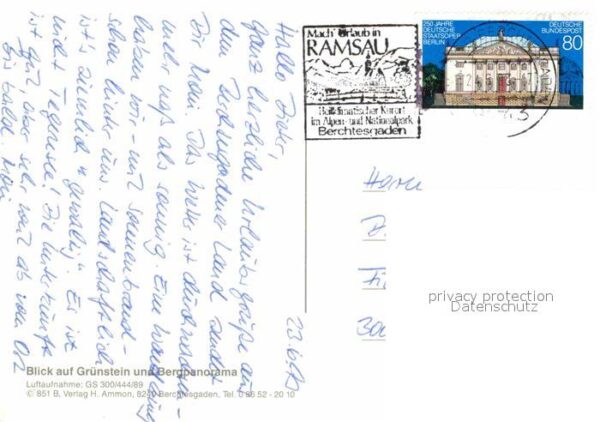 23.6.93
Hallo
ganz herzliche Urlaubsgrüße aus
dem Berchtesgadener Land sendet
Dir Das Wetter ist durchwachsen -
mal naß als sonnig. Eine Wanderung
haben wir - mit Sonnenbrand -
schon hinter uns. Landschaftlich
ist's ziemlich "gewaltig". Es ist
nicht Tegernsee! Die Unterkünfte
ist gut, aber sehr weit ab vom Ort
Bis bald.
Mach' Urlaub in
RAMSAU
Heilklimatischer Kurort
im Alpen- und Nationalpark
Berchtesgaden
250 JAHRE
DEUTSCHE
STAATSOPER
BERLIN
DEUTSCHE
BUNDESPOST
80
Herrn
privacy protection
Datenschutz
Blick auf Grünstein und Bergpanorama
Luftaufnahme: GS 300/444/89
© 851 B, Verlag H. Ammon, 8240 Berchtesgaden, Tel. 0 86 52 - 20 10